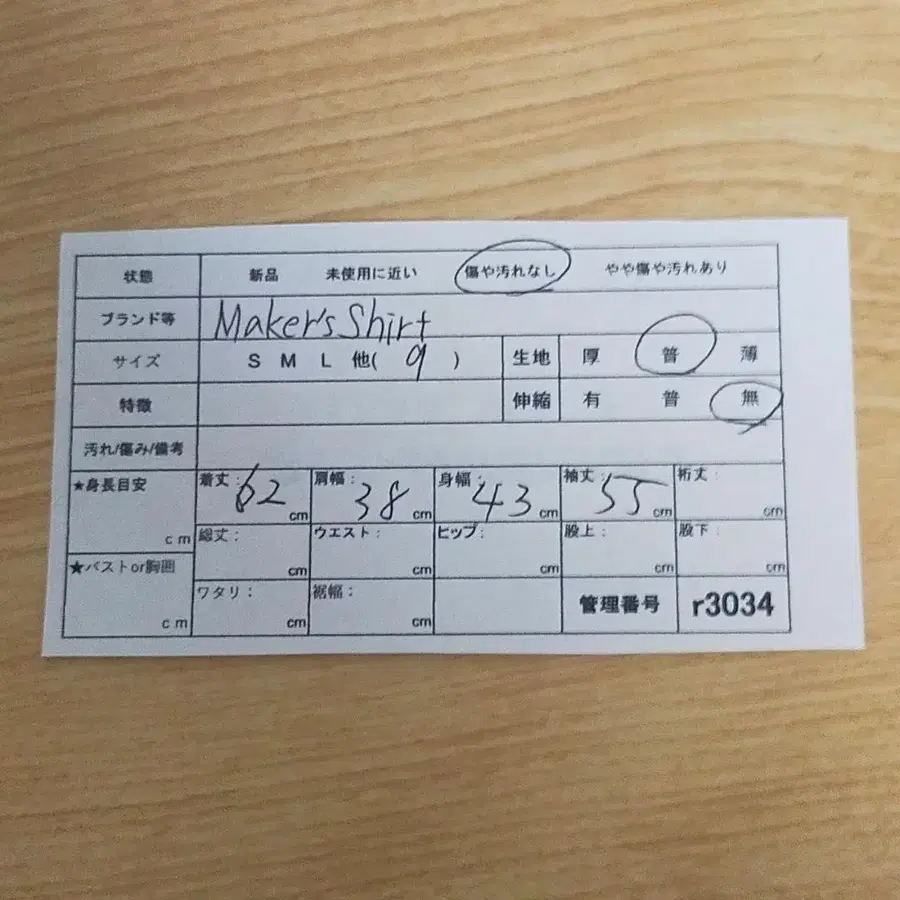 状態 新品 未使用に近い 傷や汚れなし やや傷や汚れあり
ブランド等 Maker's Shirt
サイズ S M L 他( 9 ) 生地 厚 普 薄
特徴 伸縮 有 普 無
汚れ/傷み/備考
★身長目安 cm 着丈: 62 cm 肩幅: 38 cm 身幅: 43 cm 袖丈: 55 cm 裄丈: cm
総丈: cm ウエスト: cm ヒップ: cm 股上: cm 股下: cm
★バストor胸囲 cm ワタリ: cm 裾幅: cm 管理番号 r3034